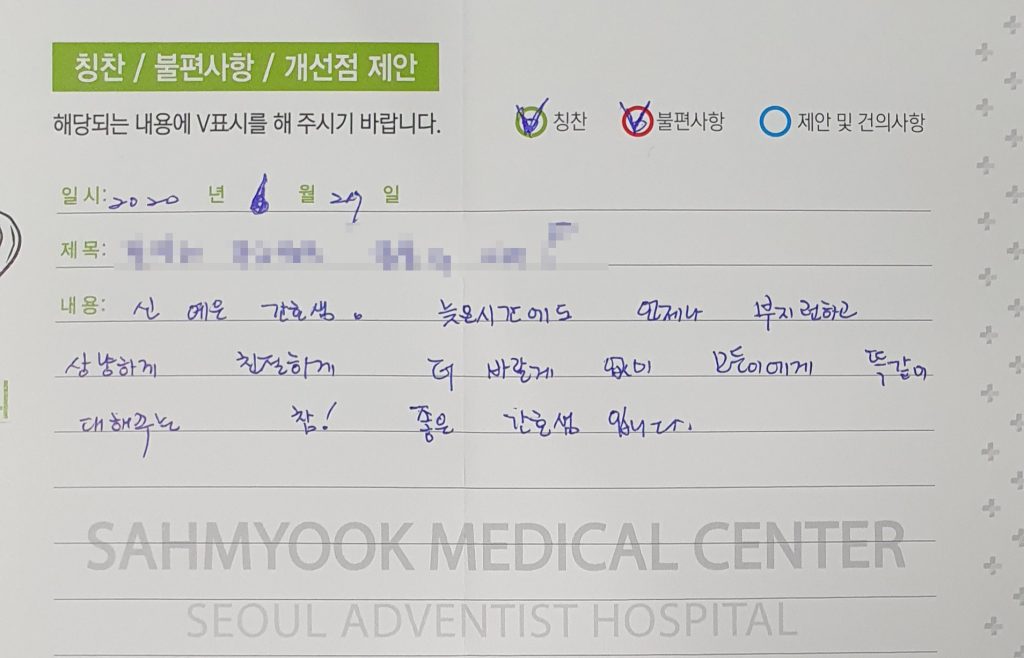 칭찬 / 불편사항 / 개선점 제안
해당되는 내용에 V표시를 해 주시기 바랍니다. 칭찬 불편사항 제안 및 건의사항
일시: 2020 년 6 월 29 일
제목:
내용: 신 예은 간호샘. 늦은시간에도 언제나 부지런하고
상냥하게 친절하게 더 바랄게 없이 모든이에게 똑같이
대해주는 참! 좋은 간호샘 입니다.
SAHMYOOK MEDICAL CENTER
SEOUL ADVENTIST HOSPITAL